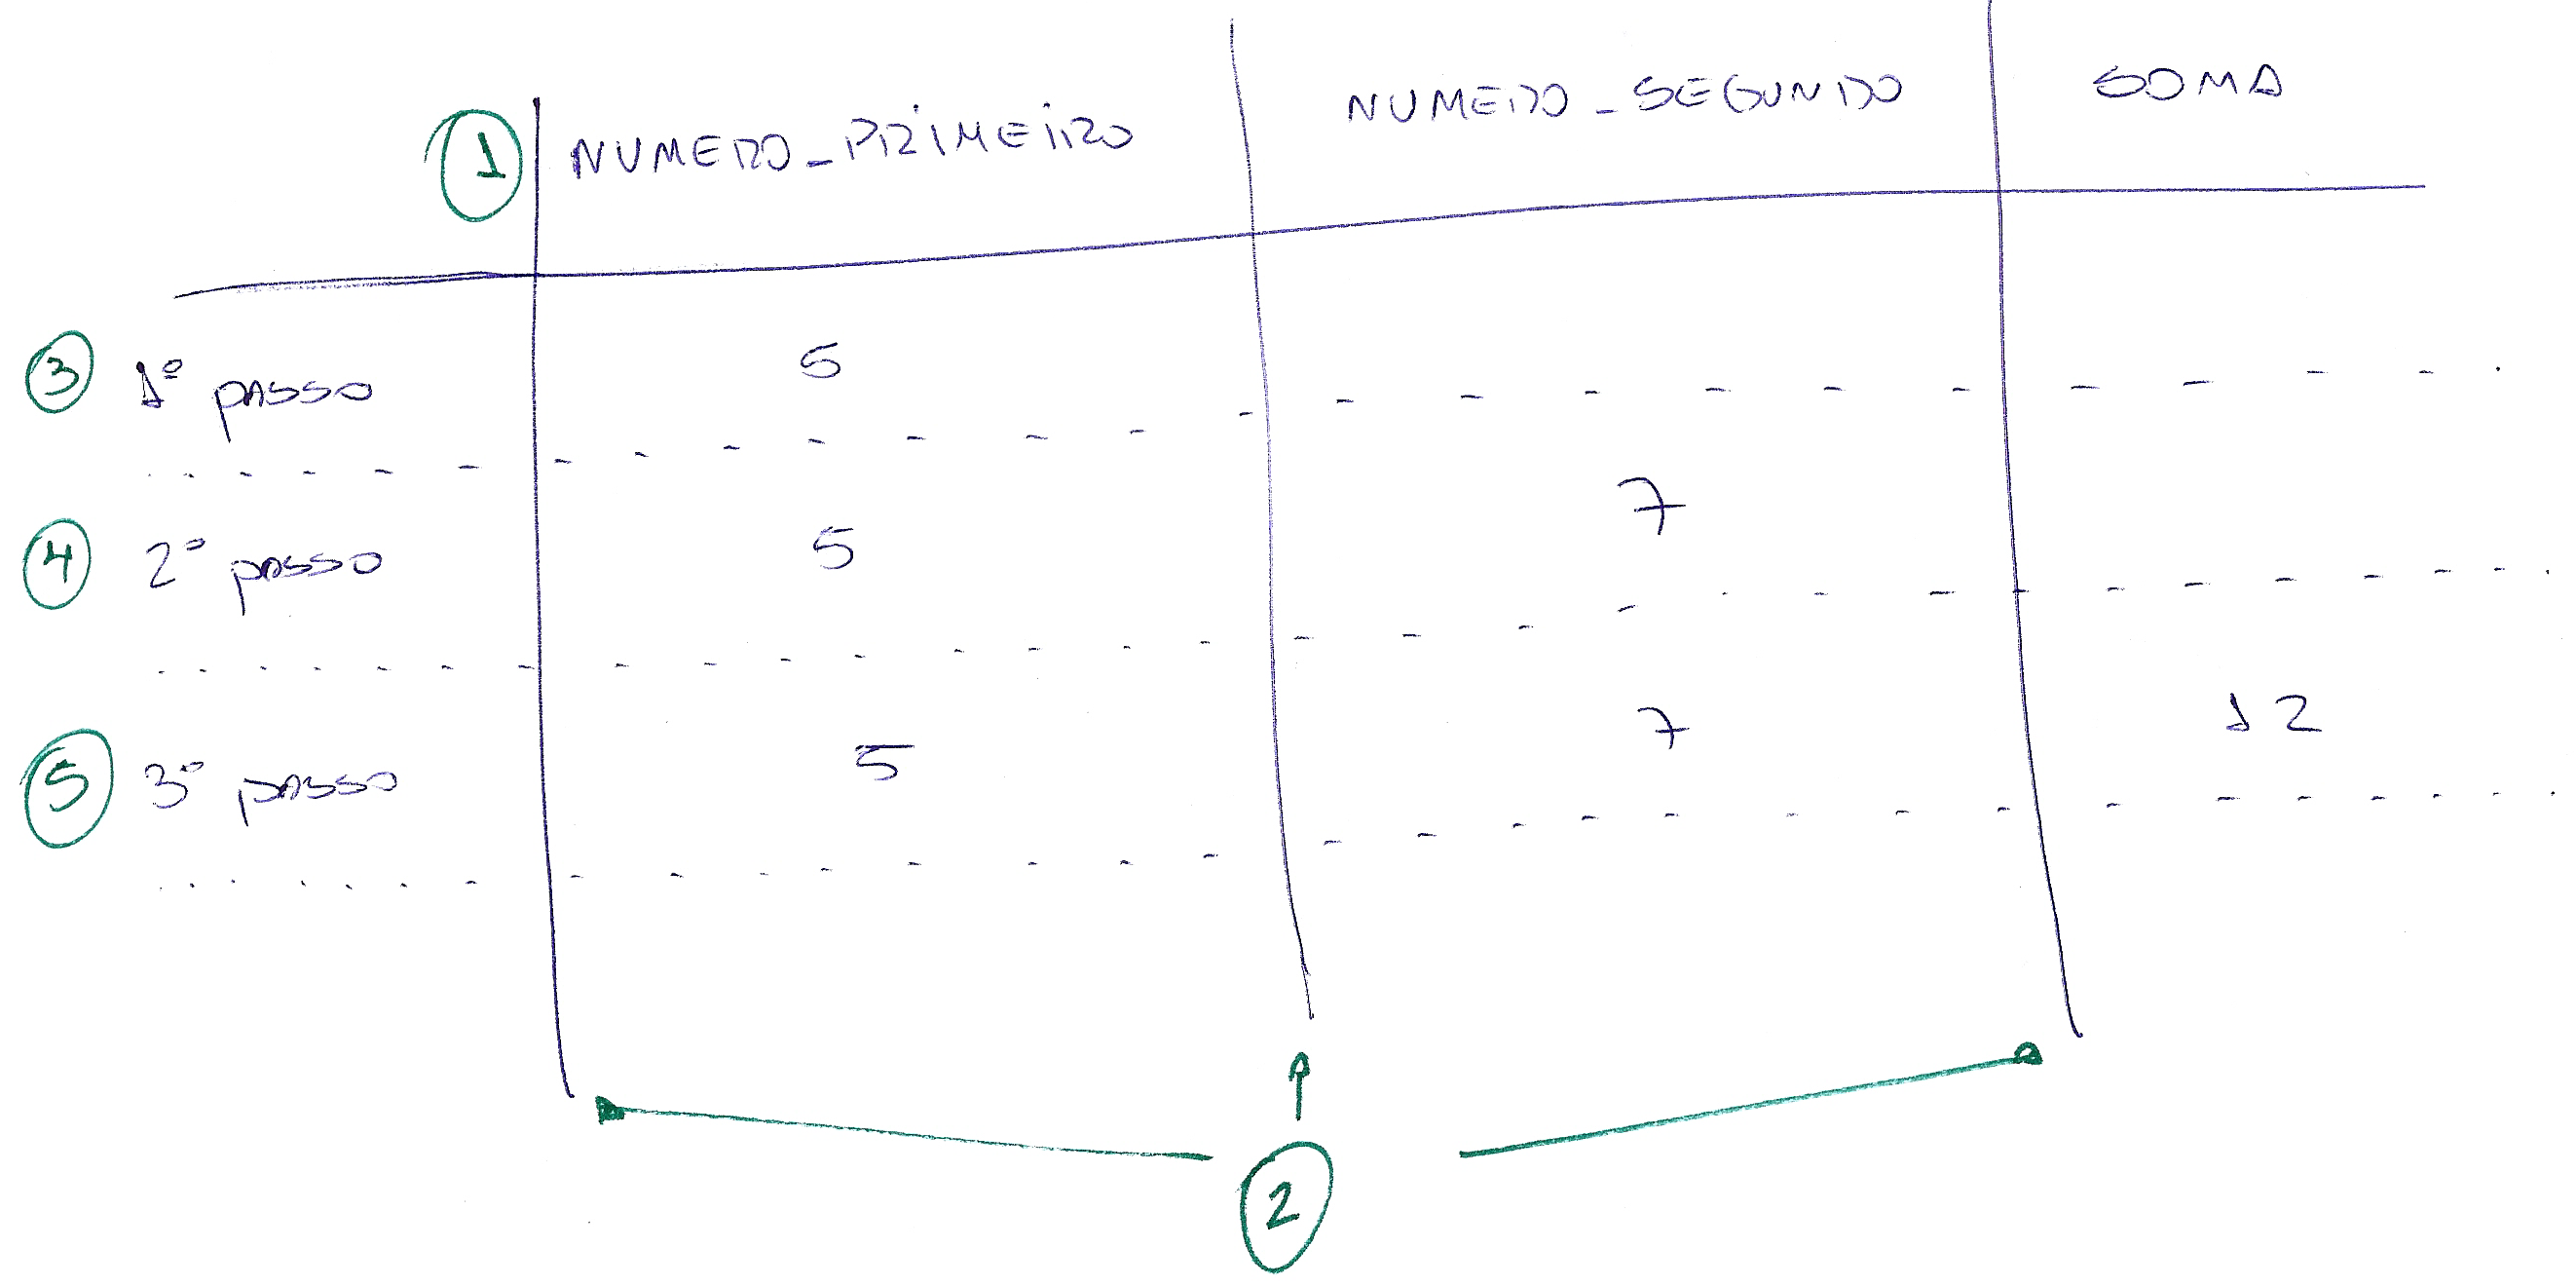 1 NUMERO_PRIMEIRO NUMERO_SEGUNDO SOMA
3 1º PASSO 5
4 2º PASSO 5 7
5 3º PASSO 5 7 12
2